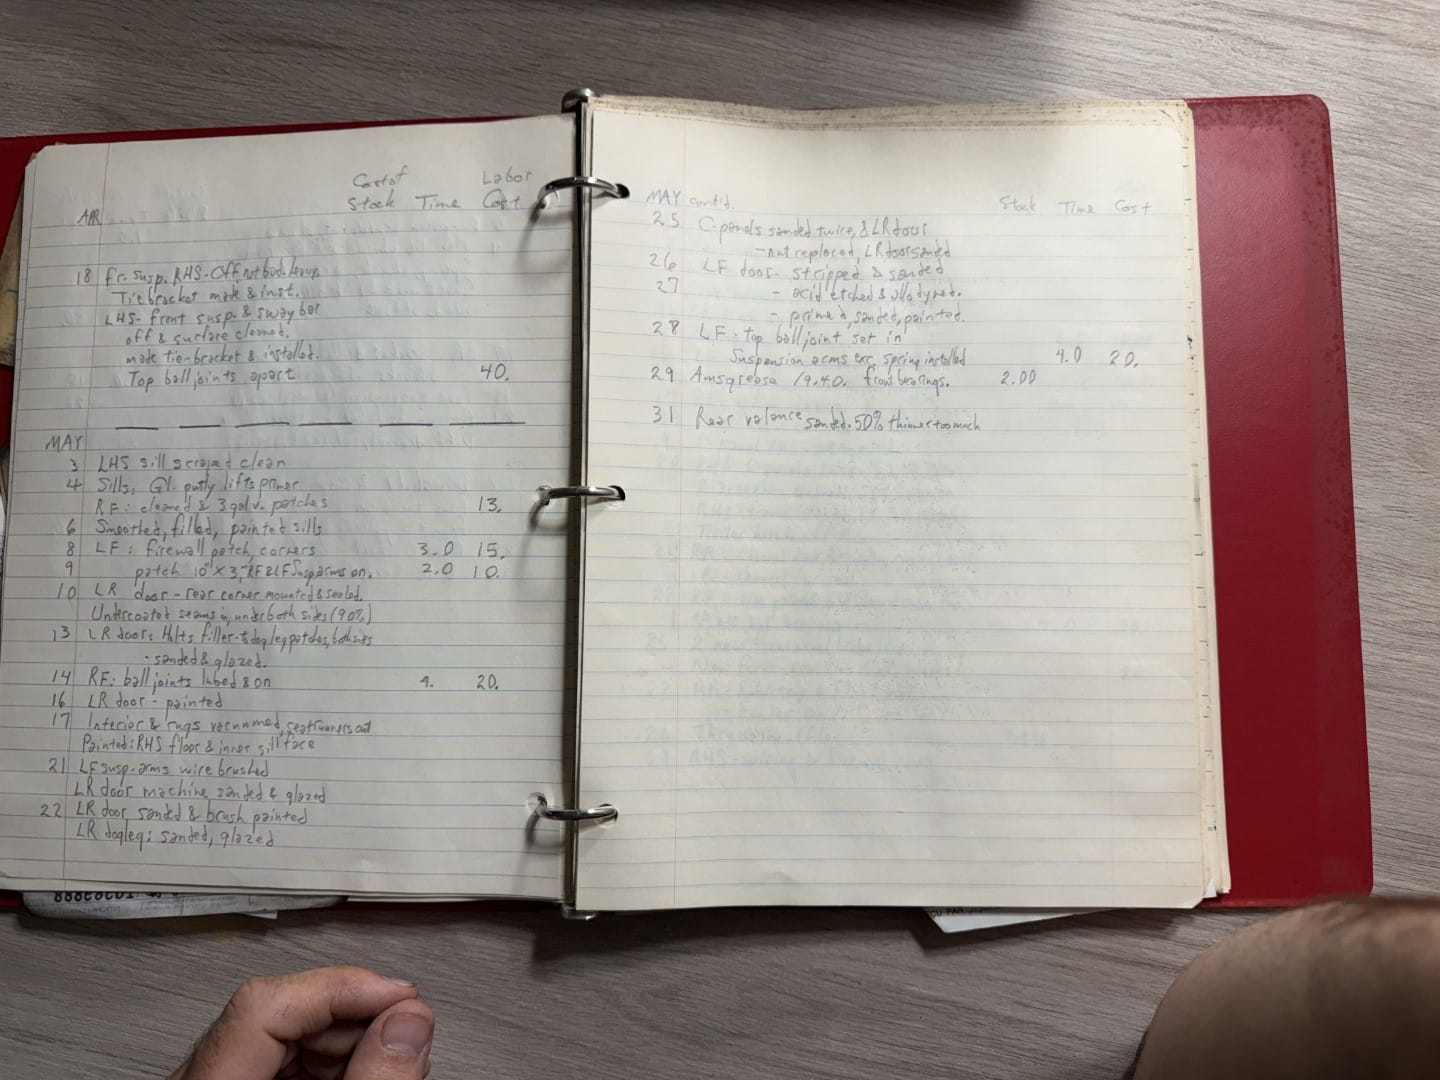 Cost of Labor
Stock Time Cost
APR
18 fr. susp. RHS- Off not bud.
Tie bracket made & inst.
LHS- front susp. & sway bar
off & surface cleaned.
made tie-bracket & installed.
Top ball joints apart 40.
MAY
3 LHS sill scraped clean
4 Sills: Gl. putty lifts primer
RF: cleaned & 3 galv. patches 13.
6 Smoothed, filled, painted sills
8 LF: firewall patch, corners 3.0 15.
9 patch 10" X 3", RF & LF Susp arms on. 2.0 10.
10 LR door - rear corner mounted & sealed.
Undercoated seams in under both sides (90%)
13 LR door: Holts filler - to dogleg patches, both sides
- sanded & glazed.
14 RF: ball joints lubed & on 4. 20.
16 LR door - painted
17 Interior & rugs vacuumed, seat runners out
Painted: RHS floor & inner sill face
21 LF susp-arms wire brushed
LR door machine sanded & glazed
22 LR door sanded & brush painted
LR dogleg: sanded, glazed
MAY cont'd. Stock Time Cost
25 C-panels sanded twice, & LR door
- nut replaced, LR door sanded
26 LF door - stripped & sanded
27 - acid etched & allodyned.
- primed, sanded, painted.
28 LF - top ball joint set in
Suspension arms exc. spring installed 4.0 20.
29 Amsgrease 19.40. front bearings. 2.00
31 Rear valance sanded. 50% thinner too much